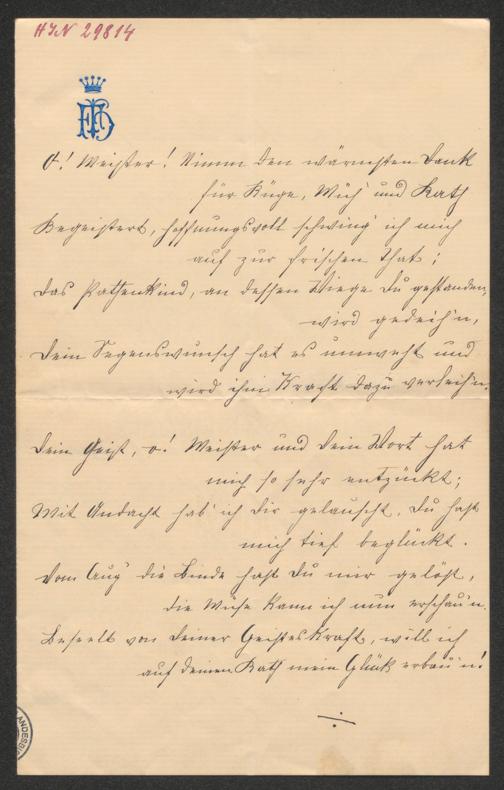 HJN 29814
O! Meister! Nimm den wärmsten Dank
für Rüge, Müh' und Rath
Begeistert, hoffnungsvoll schwing' ich mich
auf zur frischen That;
Das Pathenkind, an dessen Wiege Du gestanden,
wird gedeih'n,
Dein Segenswunsch hat es umweht und
wird ihm Kraft dazu verleih'n.
Dein Geist, o! Meister und Dein Wort hat
mich so sehr entzückt;
Mit Andacht hab' ich Dir gelauscht, Du hast
mich tief beglückt.
Vom Aug' die Binde hast Du mir gelöst,
die Muse kann ich nun erschau'n.
Beseelt von Deiner Geisteskraft, will ich
auf Deinen Rath mein Glück erbau'n!